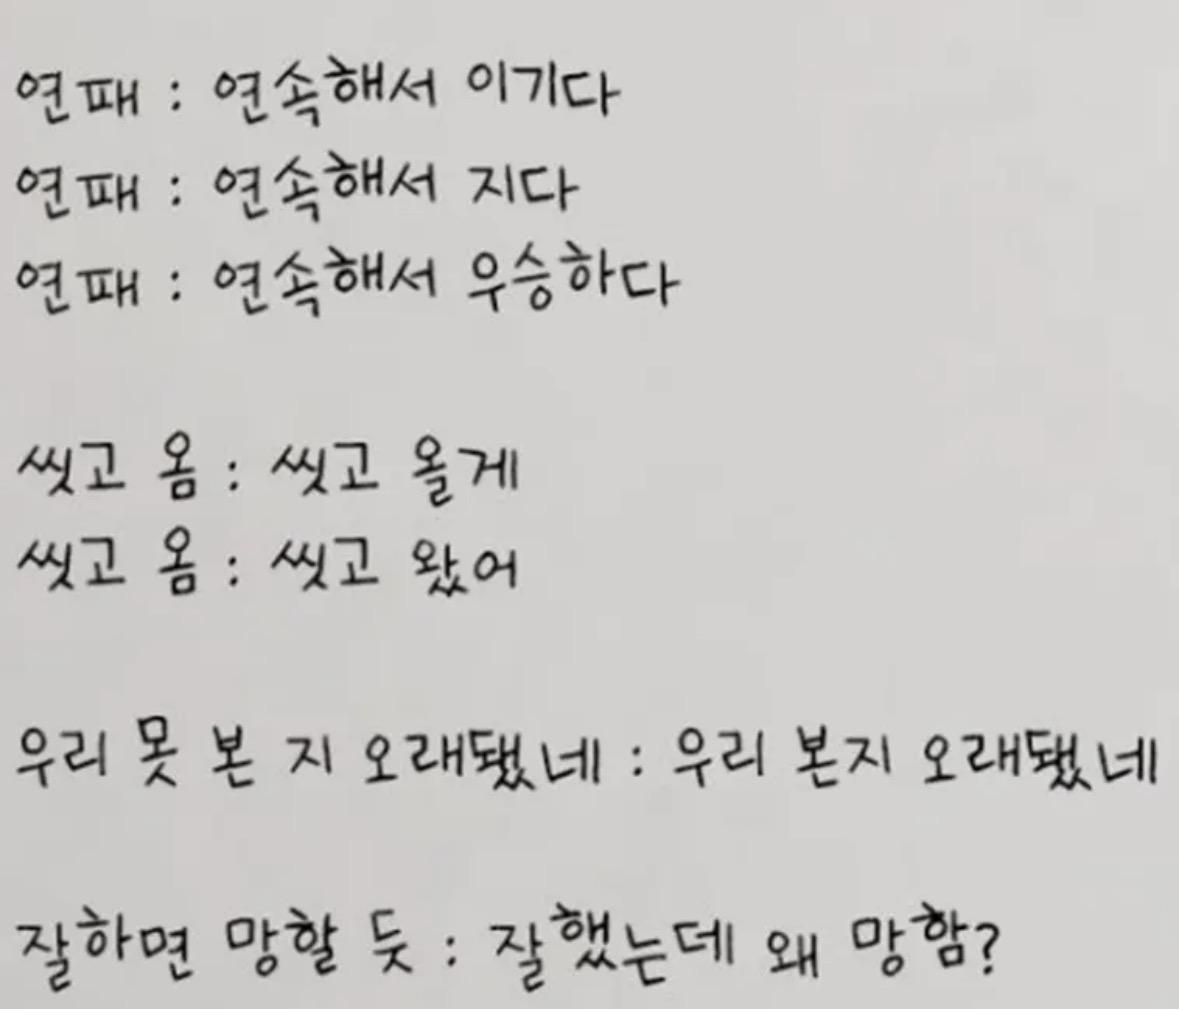 연패 : 연속해서 이기다
연패 : 연속해서 지다
연패 : 연속해서 우승하다
씻고 옴 : 씻고 올게
씻고 옴 : 씻고 왔어
우리 못 본 지 오래됐네 : 우리 본지 오래됐네
잘하면 망할 듯 : 잘했는데 왜 망함?